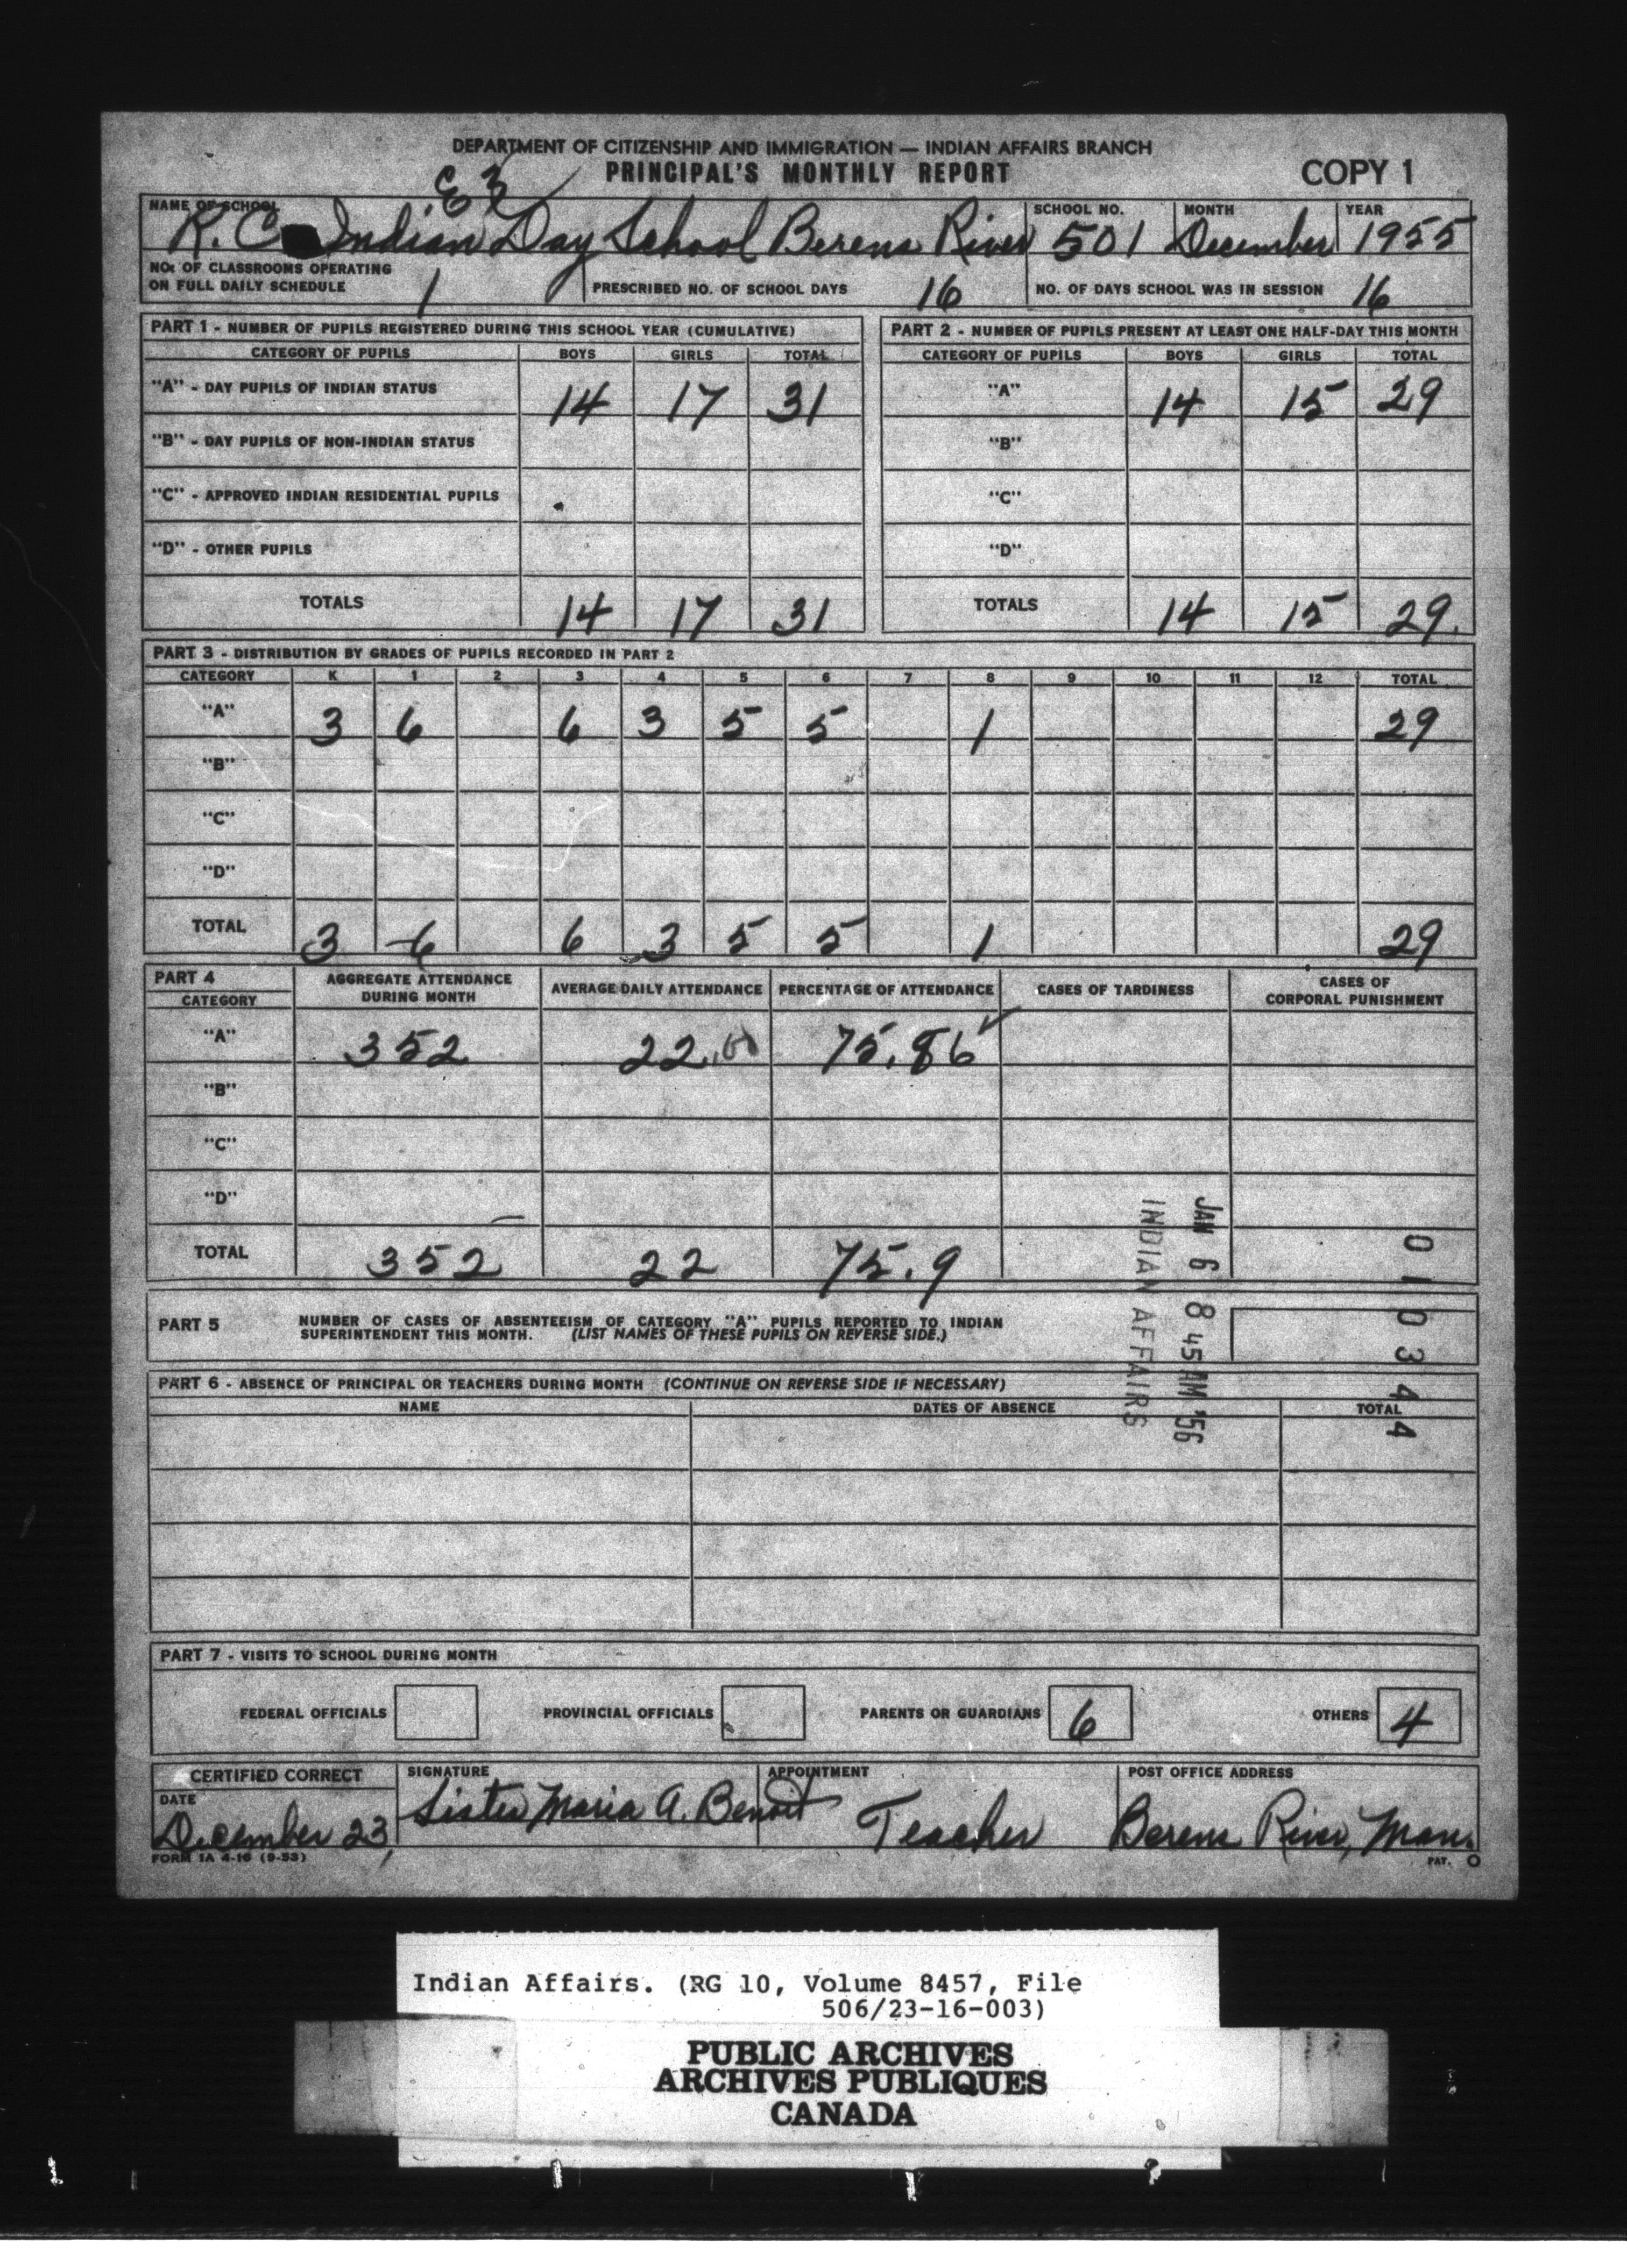 DEPARTMENT OF CITIZENSHIP AND IMMIGRATION — INDIAN AFFAIRS BRANCH
PRINCIPAL'S MONTHLY REPORT COPY 1
E3
NAME OF SCHOOL SCHOOL NO. MONTH YEAR
R.C. Indian Day School Berens River 501 December 1955
NO. OF CLASSROOMS OPERATING
ON FULL DAILY SCHEDULE 1 PRESCRIBED NO. OF SCHOOL DAYS 16 NO. OF DAYS SCHOOL WAS IN SESSION 16
PART 1 - NUMBER OF PUPILS REGISTERED DURING THIS SCHOOL YEAR (CUMULATIVE)
CATEGORY OF PUPILS BOYS GIRLS TOTAL
"A" - DAY PUPILS OF INDIAN STATUS 14 17 31
"B" - DAY PUPILS OF NON-INDIAN STATUS
"C" - APPROVED INDIAN RESIDENTIAL PUPILS
"D" - OTHER PUPILS
TOTALS 14 17 31
PART 2 - NUMBER OF PUPILS PRESENT AT LEAST ONE HALF-DAY THIS MONTH
CATEGORY OF PUPILS BOYS GIRLS TOTAL
"A" 14 15 29
"B"
"C"
"D"
TOTALS 14 15 29.
PART 3 - DISTRIBUTION BY GRADES OF PUPILS RECORDED IN PART 2
CATEGORY K 1 2 3 4 5 6 7 8 9 10 11 12 TOTAL
"A" 3 6 6 3 5 5 1 29
"B"
"C"
"D"
TOTAL 3 6 6 3 5 5 1 29
PART 4
CATEGORY AGGREGATE ATTENDANCE DURING MONTH AVERAGE DAILY ATTENDANCE PERCENTAGE OF ATTENDANCE CASES OF TARDINESS CASES OF CORPORAL PUNISHMENT
"A" 352 22.00 75.86
"B"
"C"
"D"
TOTAL 352 22 75.9
JAN 6 8 45 AM '56
INDIAN AFFAIRS
0 1 0 3 4 4
PART 5 NUMBER OF CASES OF ABSENTEEISM OF CATEGORY "A" PUPILS REPORTED TO INDIAN
SUPERINTENDENT THIS MONTH. (LIST NAMES OF THESE PUPILS ON REVERSE SIDE.)
PART 6 - ABSENCE OF PRINCIPAL OR TEACHERS DURING MONTH (CONTINUE ON REVERSE SIDE IF NECESSARY)
NAME DATES OF ABSENCE TOTAL
PART 7 - VISITS TO SCHOOL DURING MONTH
FEDERAL OFFICIALS PROVINCIAL OFFICIALS PARENTS OR GUARDIANS 6 OTHERS 4
CERTIFIED CORRECT SIGNATURE APPOINTMENT POST OFFICE ADDRESS
DATE
December 23, Sister Maria A. Benoit Teacher Berens River, Man.
FORM 1A 4-16 (9-53) PAT. O
Indian Affairs. (RG 10, Volume 8457, File
506/23-16-003)
PUBLIC ARCHIVES
ARCHIVES PUBLIQUES
CANADA